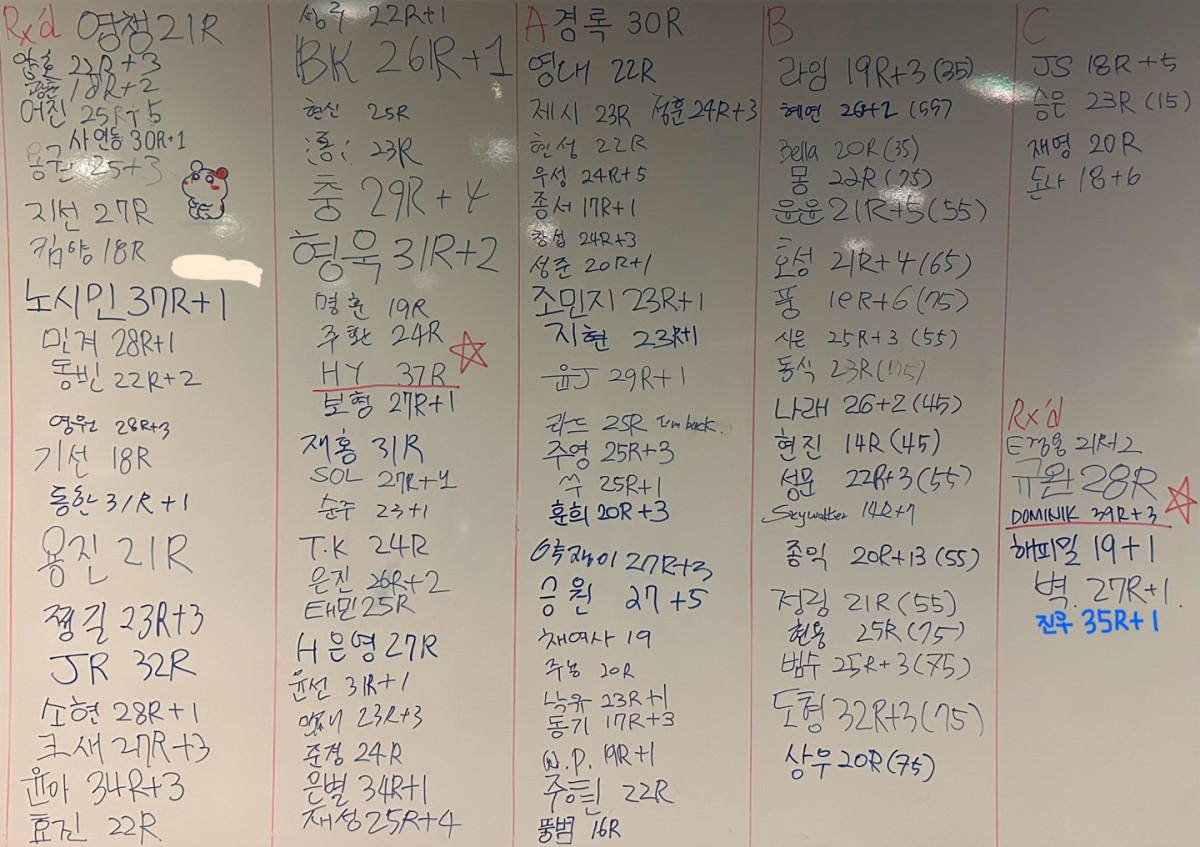 Rx'd 영쟁 21R
양호 22R+3
18R+2
어진 25R+5
사 연동 30R+1
용권 25+3
지선 27R
킴양 18R
노시민 37R+1
민겨 28R+1
동빈 22R+2
영원 28R+3
기선 18R
동한 31R+1
용진 21R
쩡길 23R+3
JR 32R
소현 28R+1
크새 27R+3
윤아 34R+3
효진 22R
성주 22R+1
BK 26R+1
현신 25R
홍 23R
충 29R+4
형욱 31R+2
명훈 19R
주환 24R
HY 37R
보형 27R+1
재홍 31R
SOL 27R+1
순주 23+1
T.K 24R
은진 26R+2
태민 25R
H 은영 27R
윤선 31R+1
23R+3
준경 24R
은별 34R+1
재성 25R+4
A 경록 30R
영대 22R
제시 23R 정훈 24R+3
현성 22R
우성 24R+5
종서 17R+1
창섭 24R+3
성준 20R+1
조민지 23R+1
지현 23R+1
윤J 29R+1
라드 25R I'm back.
주영 25R+3
쑤 25R+1
훈희 20R+3
약쟁이 27R+3
승원 27+5
채여사 19
주농 20R
낙유 23R+1
동기 17R+3
W.P. 19R+1
주현 22R
뚱범 16R
B
라임 19R+3 (35)
혜연 26+2 (55)
Bella 20R (35)
몽 22R (75)
윤윤 21R+5 (55)
호성 21R+4 (65)
풍 18R+6 (75)
시은 25R+3 (55)
동식 23R (75)
나래 26+2 (45)
현진 14R (45)
성문 22R+3 (55)
Skywalker 14R+7
종익 20R+13 (55)
정림 21R (55)
현용 25R (75)
범수 25R+3 (75)
도형 32R+3 (75)
상우 20R (75)
C
JS 18R+5
승은 23R (15)
재영 20R
돈나 18+6
Rx'd
E경용 21R+2
규완 28R
DOMINIK 39R+3
해피밀 19+1
벽. 27R+1.
진우 35R+1